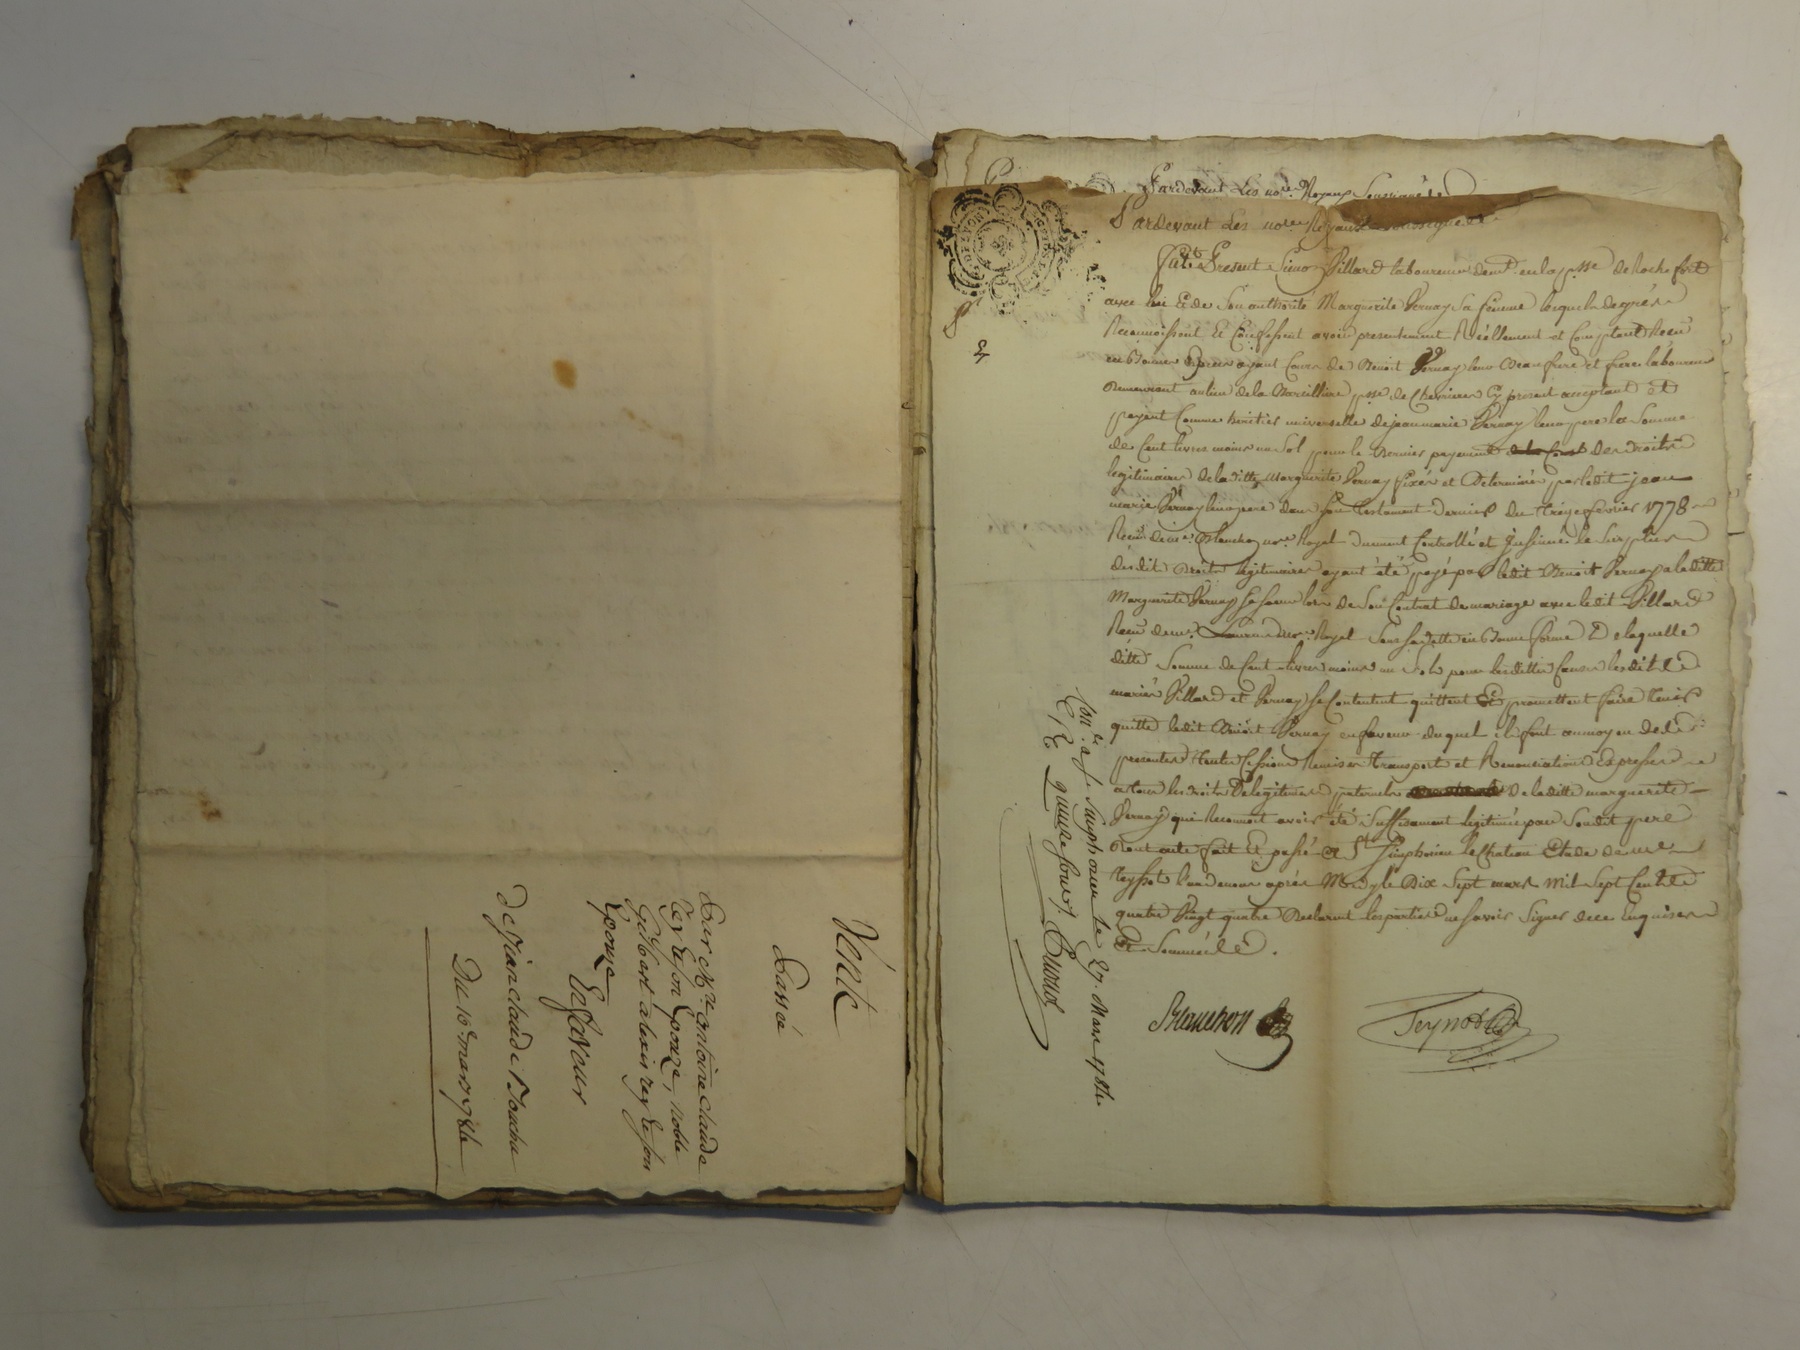 Vente
Passée
Par Mre antoine claude
rey & son Epouze, noble
Gilbert alexis rey & son
Epouze
En faveur
De Jean claude Bouchu
Du 10e mars 1784
Pardevant Les nores Royaux Soussignés
Pardevant Les nores Royaux Soussignés
Fut Present Simon Pillard laboureur demt. en la psse de Rochefort
avec lui Et de Son authorité Marguerite Vernay Sa femme lesquels de gré
Reconnoissent Et Confessent avoir presentement Réellement et Comptant Reçu
en Bonnes Espèces ayant Cours de Benoit Vernay leur Beau frere et frere laboureur
Demeurant au lieu de la psse de Chevrieres Cy present acceptant et
payant Comme heritier universelle de jean marie Vernay leur pere la Somme
de Cent livres moins un Sol pour le Dernier payement des Droits
legitimaires de la ditte Marguerite Vernay fixés et Déterminés par ledit jean
marie Vernay leur pere dans Son testament Dernier du treize fevrier 1778
Reçu de me. Blanchon nore. Royal Dument Controllé et Insinué le Surplus
desdits Droits legitimaires ayant été payé par ledit Benoit Vernay a laditte
Marguerite Vernay Sa Soeur lors de Son Contrat de mariage avec ledit Pillard
Reçu de me. nore. Royal Sous Sa datte en Bonne forme De laquelle
ditte Somme de Cent livres moins un Sol pour lesdittes Causes lesdits
mariés Pillard et Vernay Se Contentent quittent Et promettent faire tenir
quitte ledit Benoit Vernay en faveur duquel ils font au moyen des
presentes toutes Cessions Remises transports et Renonciations Expresses
a tous les droits De legitimes paternels de laditte marguerite
Vernay qui Reconnoit avoir été Suffisament legitimée par Sondit pere
Dont acte fait Et passé a St. Simphorien le Chateau Etude de me
Teyssot L'un de nous après Midy le Dix Sept mars Mil Sept Cent
quatre Vingt quatre Declarant les parties ne Savoir Signer de ce Enquises
Et Sommées.
Blanchon
Conlé. a St. Simphorien le 27. Mars 1784.
R quinze Sous.